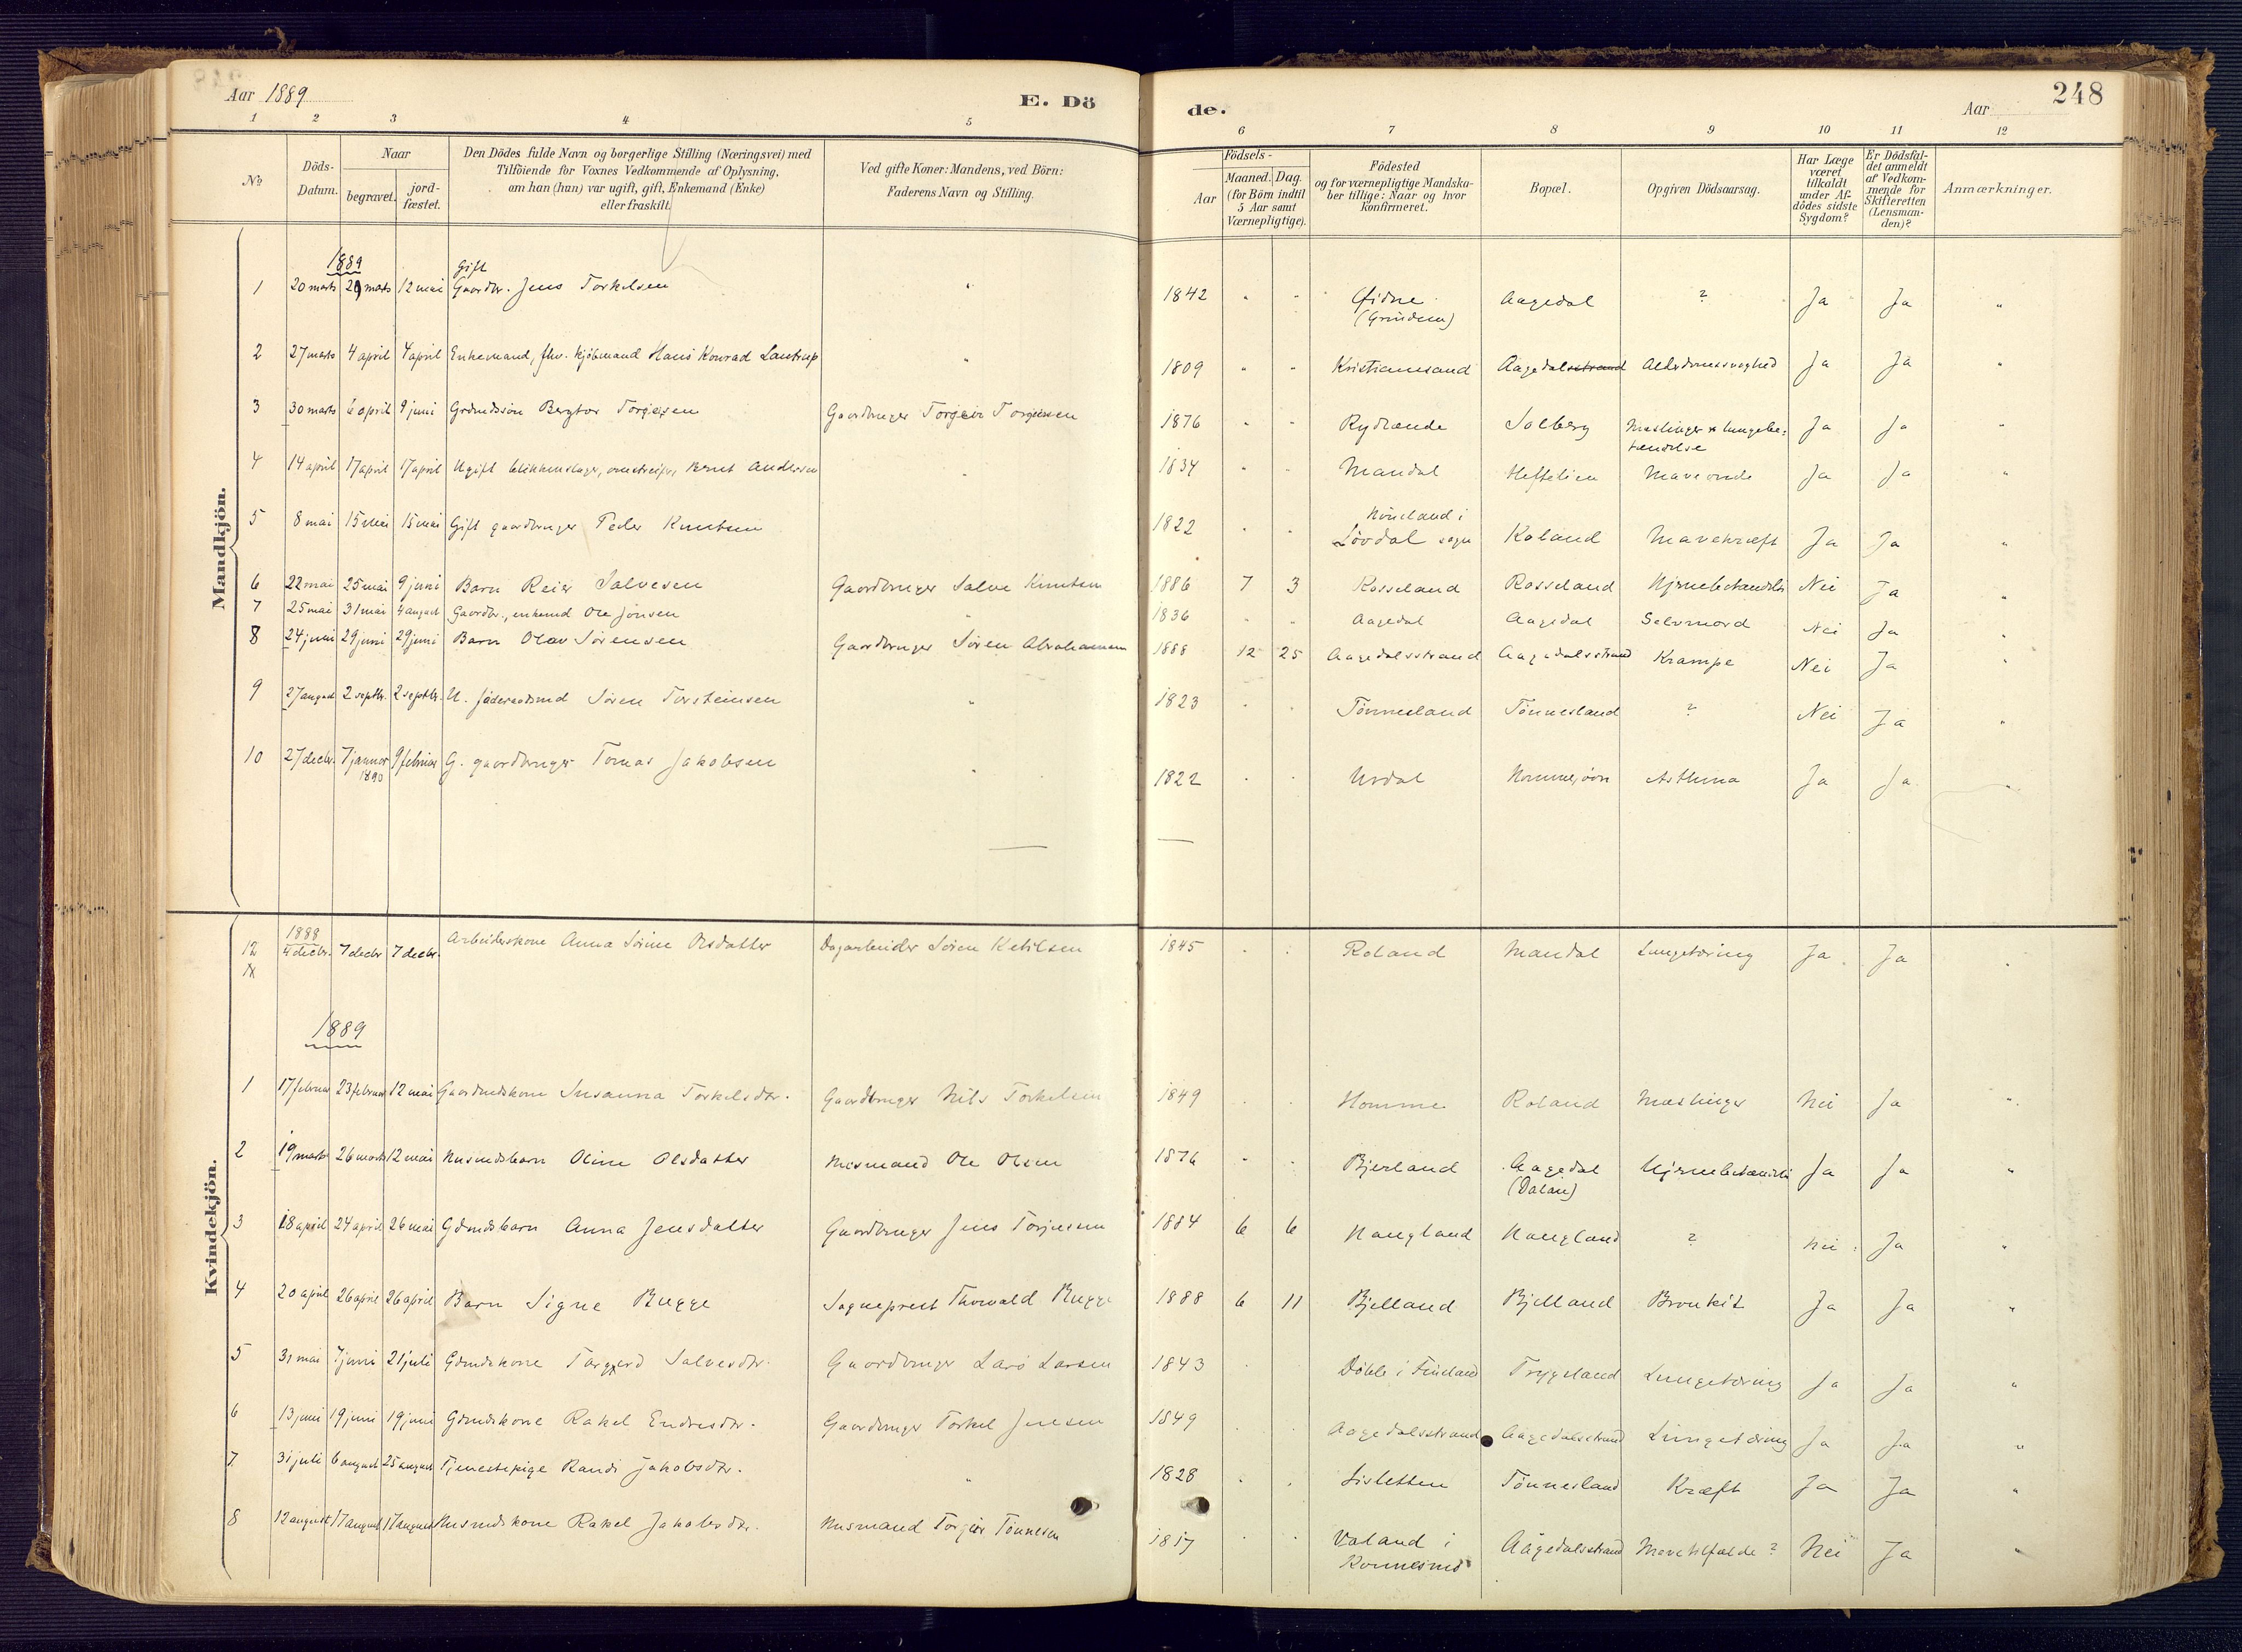 Aar 1889
E. Dö
de.
Aar
248
1 2 3 4 5 6 7 8 9 10 11 12
No
Döds-Datum.
Naar
begravet.
jord-fæstet.
Den Dödes fulde Navn og borgerlige Stilling (Næringsvei) med
Tilföiende for Voxnes Vedkommende af Oplysning,
om han (hun) var ugift, gift, Enkemand (Enke)
eller fraskilt.
Ved gifte Koner: Mandens, ved Börn:
Faderens Navn og Stilling.
Födsels-
Aar
Maaned. Dag.
(for Börn indtil
5 Aar samt
Værnepligtige).
Födested
og for værnepligtige Mandska-
ber tillige: Naar og hvor
konfirmeret.
Bopæl.
Opgiven Dödsaarsag.
Har Læge
været
tilkaldt
under Af-
dödes sidste
Sygdom?
Er Dödsfal-
det anmeldt
af Vedkom-
mende for
Skifteretten
(Lensman-
den)?
Anmærkninger.
Mandkjön.
1889
Gift
1 20 marts 29 marts 12 mai Gaardbr. Jens Torkelsen " 1842 " " Øidne Aagedal ? Ja Ja "
(Grunden)
2 27 marts 4 april 4 april Enkemand, fhv. kjøbmand Hans Konrad Lantrup " 1809 " " Kristianssand Aagedalsstrand Alderdomssvaghed Ja Ja "
3 30 marts 6 april 9 juni Grdmdssøn Bergtor Torgiersen Gaardbruger Torgeir Torgiersen 1876 " " Rydlende Solberg Mæslinger & lungebe-
tændelse Ja Ja "
4 14 april 17 april 17 april Ugift blikkenslager, omstreifer, Bernt Andersen " 1834 " " Mandal Heftelien Maveonde Ja Ja "
5 8 mai 15 mai 15 mai Gift gaardbruger Peder Knutsen 1822 " " Løvdal sogn Koland Mavekræft Ja Ja "
6 22 mai 25 mai 9 juni Barn Reier Salvesen Gaardbruger Salve Knutsen 1886 7 3 Rosseland Rosseland Hjernebetændelse Nei Ja "
7 25 mai 31 mai 4 august Gaardbr., enkemd Ole Jonsen " 1836 " " Aagedal Aagedal Selvmord Nei Ja "
8 24 juni 29 juni 29 juni Barn Olav Sørensen Gaardbruger Søren Abrahamsen 1888 12 25 Aagedalsstrand Aagedalsstrand Krampe Nei Ja "
9 27 august 2 septbr. 2 septbr. U. føderaadsmd Søren Torsteinsen " 1823 " " Tønnesland Tønnesland ? Nei Ja "
10 27 decbr. 7 januar 9 februar G. gaardbruger Tomas Jakobsen " 1822 " " Urdal Asthma Ja Ja "
1890
Kvindekjön.
1888
12 4 decbr. 7 decbr 7 decbr. Arbeiderskone Anna Sørine Olsdatter Dagarbeider Søren Ketilsen 1845 " " Roland Mandal Lungetæring Ja Ja "
1889
1 17 februar 23 februar 12 mai Gaardmdskone Susanna Torkelsdtr. Gaardbruger Nils Torkelsen 1849 " " Homme Roland Mæslinger Nei Ja "
2 19 marts 26 marts 12 mai Husmdsbarn Oline Olsdatter Husmand Ole Olsen 1876 " " Bjerland Aagedal Hjernebetændelse Ja Ja "
(Dalan)
3 18 april 24 april 26 mai Gdmdsbarn Anna Jensdatter Gaardbruger Jens Torjusen 1884 6 6 Haugland Haugland ? Nei Ja "
4 20 april 26 april 26 april Barn Signe Bugge Sogneprest Thorvald Bugge 1888 6 11 Bjelland Bjelland Bronkit Ja Ja "
5 31 mai 7 juni 21 juli Gdmdskone Torgjerd Salvesdtr. Gaardbruger Lars Larsen 1843 " Døble i Finland Trygsland Lungetæring Ja Ja "
6 13 juni 19 juni 19 juni Gdmdskone Rakel Endresdtr. Gaardbruger Torkel Jensen 1849 " " Aagedalsstrand Aagedalsstrand Lungetæring Ja Ja "
7 31 juli 6 august 25 august Tjenestepige Randi Jakobsdtr. " 1828 " " Lisletten Tønnesland Kræft Ja Ja "
8 12 august 17 august 17 august Husmdskone Rakel Jakobsdtr. Husmand Torgier Tønnesen 1817 " " Valand i Aagedalsstrand Mavetilfælde? Nei Ja "